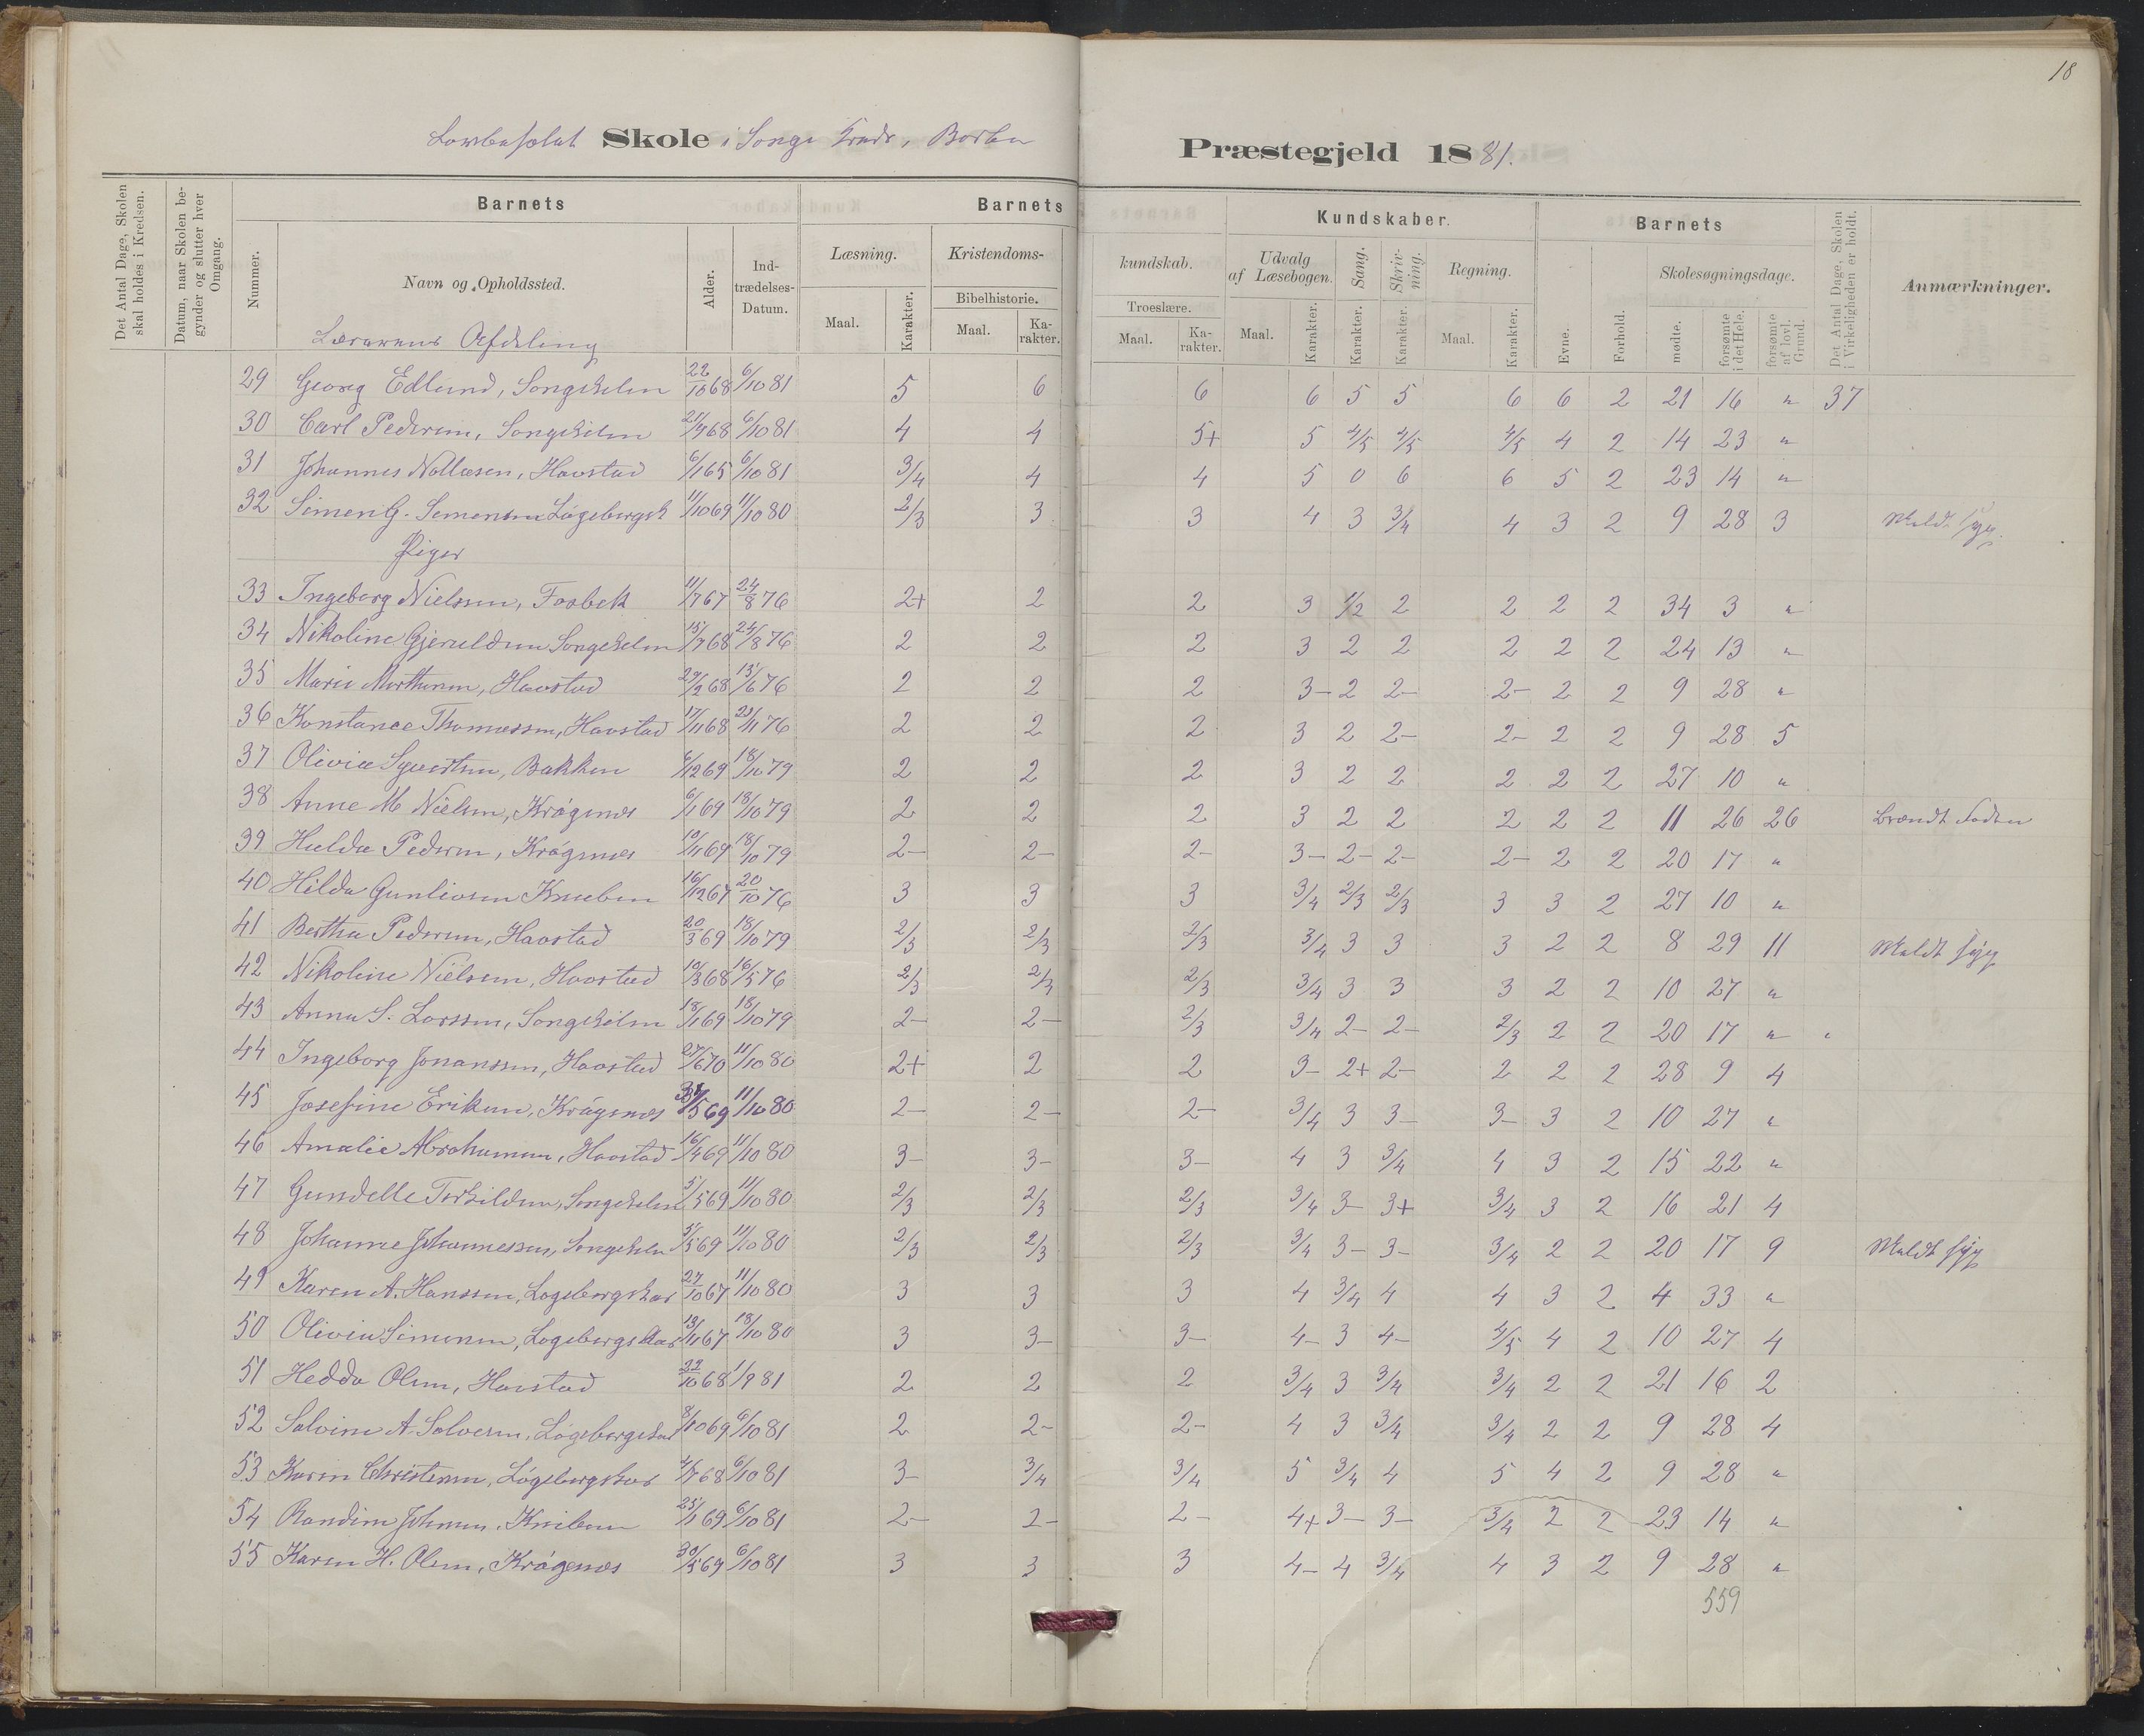 18
Skole i Songe Kreds,
Præstegjeld 1881.
Det Antal Dage, Skolen skal holdes i Kredsen.
Datum, naar Skolen begynder og slutter hver Omgang.
Nummer.
Barnets
Navn og Opholdssted.
Alder.
Indtrædelses-Datum.
Barnets
Læsning.
Maal. Karakter.
Kristendoms-
Bibelhistorie.
Maal. Karakter.
kundskab.
Troeslære.
Maal. Karakter.
Kundskaber.
Udvalg af Læsebogen.
Maal. Karakter.
Sang. Karakter.
Skrivning. Karakter.
Regning.
Maal. Karakter.
Barnets
Evne.
Forhold.
Skolesøgningsdage.
mødte. forsømte i det Hele. forsømte af lovl. Grund.
Det Antal Dage, Skolen i Virkeligheden er holdt.
Anmærkninger.
Lærerens Afdeling
29 Georg Edlund, Songekilen 22/10 68 6/10 81 5 6 6 6 5 5 6 6 2 21 16 " 37
30 Carl Pedersen, Songekilen 21/7 68 6/10 81 4 4 5+ 5 4/5 4/5 4/5 4 2 14 23 "
31 Johannes Nollesen, Havstad 6/1 65 6/10 81 3/4 4 4 5 0 6 6 5 2 23 14 "
32 Simen G. Simensen 11/10 69 11/10 80 2/3 3 3 4 3 3/4 4 3 2 9 28 3 Meldt syg
Piger
33 Ingeborg Nielsen, Fosbek 11/7 67 24/8 76 2+ 2 2 3 1/2 2 2 2 2 34 3 "
34 Nikoline Gjeruldsen Songekilen 15/7 68 24/8 76 2 2 2 3 2 2 2 2 2 24 13 "
35 Marie Mortensen, Havstad 29/2 68 13/6 76 2 2 2 3- 2 2- 2- 2 2 9 28 "
36 Konstance Thomassen, Havstad 17/11 68 23/11 76 2 2 2 3 2 2- 2- 2 2 9 28 5
37 Olivia Syvertsen, Bakken 6/12 69 18/10 79 2 2 2 3 2 2 2 2 2 27 10 "
38 Anne M Nielsen, Krøgenes 6/1 69 18/10 79 2 2 2 3 2 2 2 2 2 11 26 26 Brændt Foden
39 Hulda Pedersen, Krøgenes 10/11 69 18/10 79 2- 2- 2- 3- 2- 2- 2- 2 2 20 17 "
40 Hilda Gunliosen Knuben 16/12 67 20/10 76 3 3 3 3/4 2/3 2/3 3 3 2 27 10 "
41 Bertha Pedersen, Havstad 20/3 69 18/10 79 2/3 2/3 2/3 3/4 3 3 3 2 2 8 29 11 Meldt syg
42 Nikoline Nielsen, Havstad 10/3 68 16/5 76 2/3 2/3 2/3 3/4 3 3 3 2 2 10 27 "
43 Anna S. Larssen, Songekilen 18/1 69 18/10 79 2- 2- 2/3 3/4 2- 2- 2/3 2 2 20 17 "
44 Ingeborg Johanssen, Havstad 27/6 70 11/10 80 2+ 2 2 3- 2+ 2- 2 2 2 28 9 4
45 Josefine Eriksen, Krøgenes 31/5 69 11/10 80 2- 2- 2- 3/4 3 3- 3- 3 2 10 27 "
46 Amalie Abrahamsen, Havstad 16/4 69 11/10 80 3- 3- 3- 4 3 3/4 4 3 2 15 22 "
47 Gundelle Torkildsen, Songekilen 5/5 69 11/10 80 2/3 2/3 2/3 3/4 3- 3+ 3/4 3 2 16 21 4
48 Johanne Johannessen, Songekilen 5/5 69 11/10 80 2/3 2/3 2/3 3/4 3- 3- 3/4 2 2 20 17 9 Meldt syg
49 Karen A. Hanssen, Løgebergskar 27/10 67 11/10 80 3 3 3 4 3/4 4 4 3 2 4 33 "
50 Olivia Simonsen, Løgebergskar 13/11 67 18/10 80 3 3- 3- 4- 3 4- 4/5 4 2 10 27 4
51 Hedda Olsen, Havstad 22/10 68 1/9 81 2 2 2 3/4 3 3/4 3/4 2 2 21 16 2
52 Salvine A. Salvesen, Løgebergskar 8/10 69 6/10 81 2 2- 2- 4 3 3/4 3/4 2 2 9 28 4
53 Karen Christensen, Løgebergskar 4/7 68 6/10 81 3- 3/4 3/4 5 3/4 4 5 4 2 9 28 "
54 Randine Johnsen, 25/1 69 6/10 81 2- 2- 2- 4+ 3- 3- 3/4 2 2 23 14 "
55 Karen H. Olsen, Krøgenes 30/5 69 6/10 81 3 3 3 4- 4 3/4 4 3 2 9 28 "
559